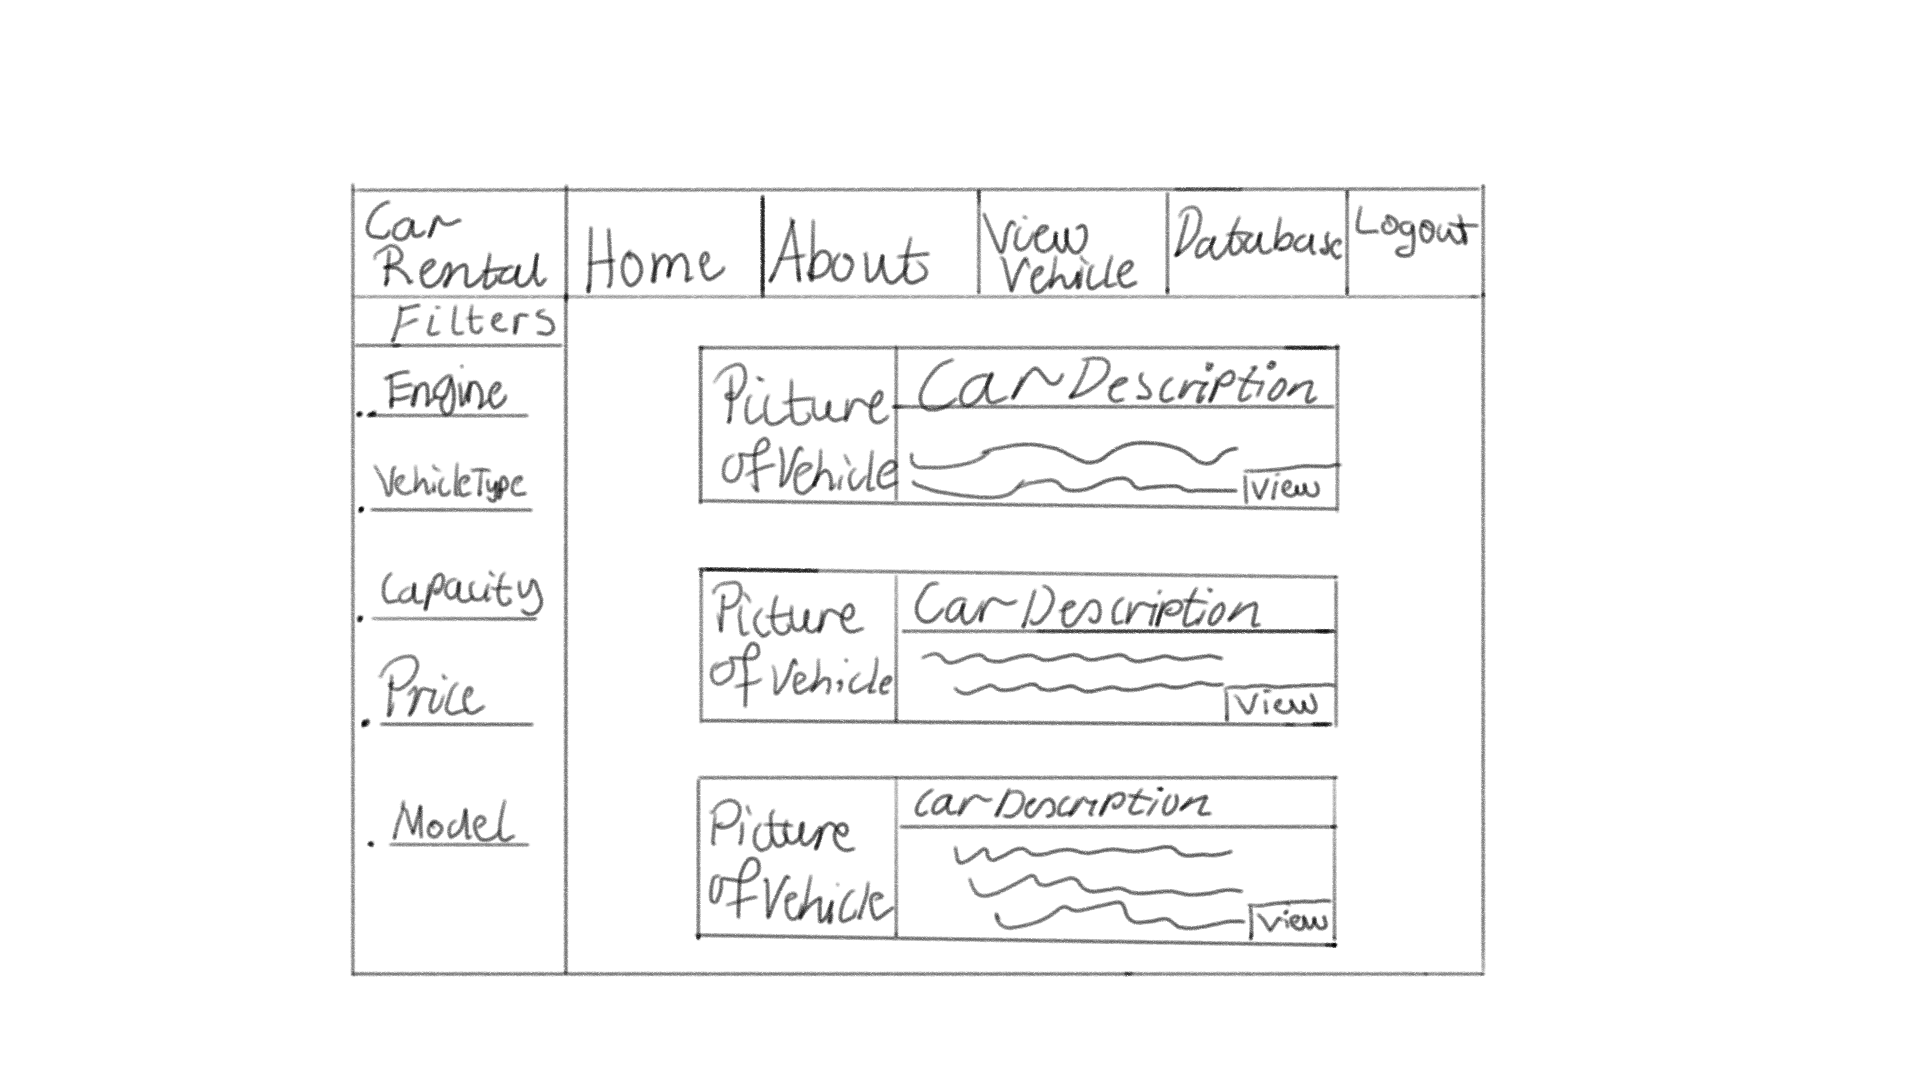 Car
Rental
Home
About
View
Vehicle
Database
Logout
Filters
Engine
VehicleType
Capacity
Price
Model
Picture
of Vehicle
Car Description
View
Picture
of Vehicle
Car Description
View
Picture
of Vehicle
Car Description
View